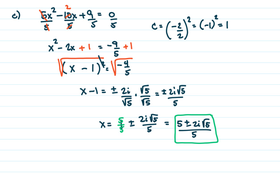 c) 5x²/5 - 10x/5 + 9/5 = 0/5
c = (-2/2)² = (-1)² = 1
x² - 2x + 1 = -9/5 + 1
√(x - 1)² = √-4/5
x - 1 = ± 2i/√5 · √5/√5 = ± 2i√5/5
x = 5/5 ± 2i√5/5 = 5 ± 2i√5/5